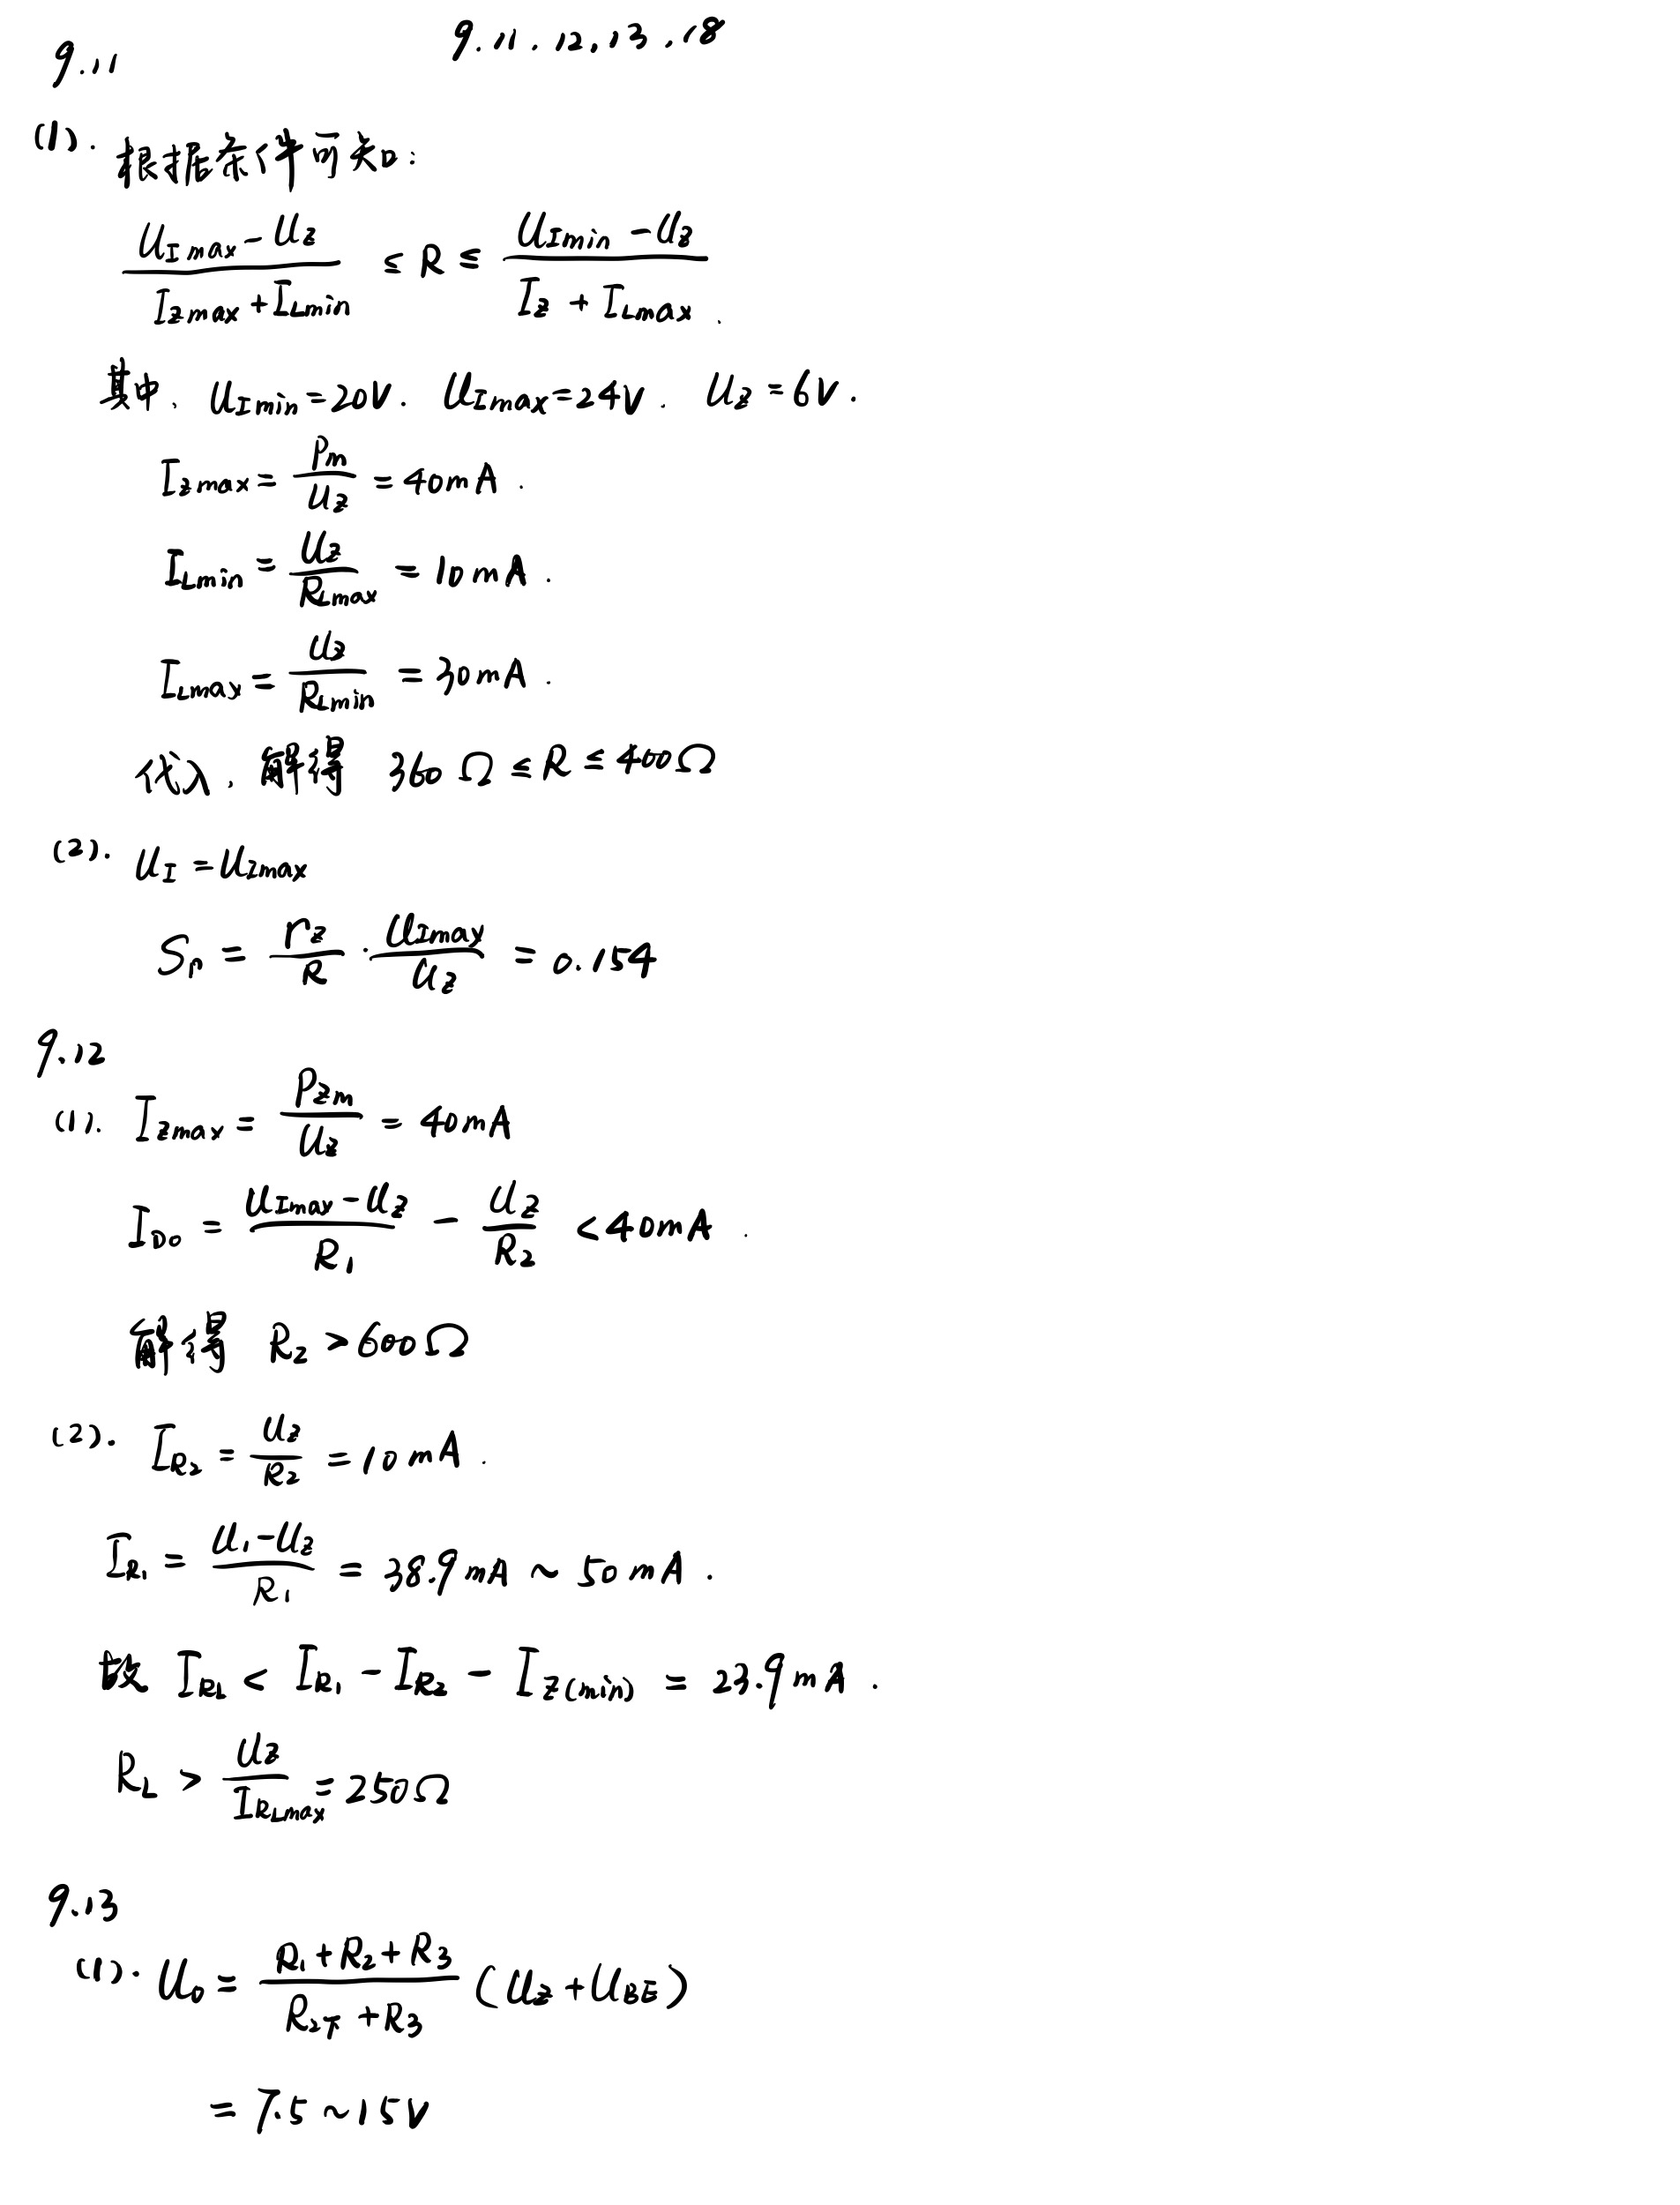 9.11.12,13.18
9.11
(1). 根据条件可知:
(U_Imax - U_Z)/(I_Zmax + I_Lmin) ≤ R ≤ (U_Imin - U_Z)/(I_Z + I_Lmax).
其中、U_Imin = 20V. U_Imax = 24V. U_Z = 6V.
I_Zmax = P_m/U_Z = 40mA.
I_Lmin = U_Z/R_Lmax = 10mA.
I_Lmax = U_Z/R_Lmin = 30mA.
代入, 解得 360Ω ≤ R ≤ 400Ω
(2). U_I = U_Imax
S_r = r_Z/R · U_Imax/U_Z = 0.154
9.12
(1). I_Zmax = P_Zm/U_Z = 40mA
I_D0 = (U_Imax - U_Z)/R_1 - U_Z/R_2 < 40mA.
解得 R_2 > 600Ω
(2). I_R2 = U_Z/R_2 = 10mA.
I_R1 = (U_1 - U_Z)/R_1 = 38.9mA ~ 50mA.
故 I_RL < I_R1 - I_R2 - I_Z(min) = 23.9mA.
R_L > U_Z/I_RLmax = 250Ω
9.13
(1). U_0 = (R_1 + R_2 + R_3)/(R_2下 + R_3) (U_Z + U_BE)
= 7.5 ~ 15V